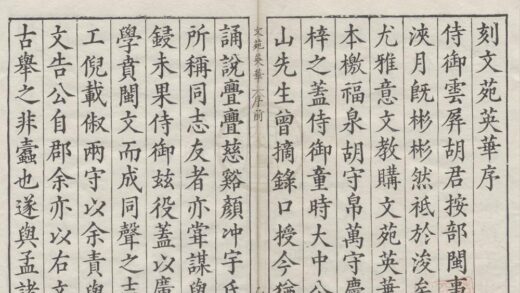 刻文苑英華序
侍御雲屏胡君按部閩事
浹月既彬彬然祇於浚矣
尤雅意文教購文苑英華
本檄福泉胡守帛萬守慶
梓之蓋侍御童時大中公
山先生曾摘錄口授今猶
文苑英華 序前
誦說亹亹慈谿顏冲宇氏
所稱同志友者亦甞謀與
鋟未果侍御玆役蓋以
學賁閩文而成同聲之志
工倪載俶兩守以余責與
文告公自郡余亦以右文
古舉之非蠹也遂與孟諸